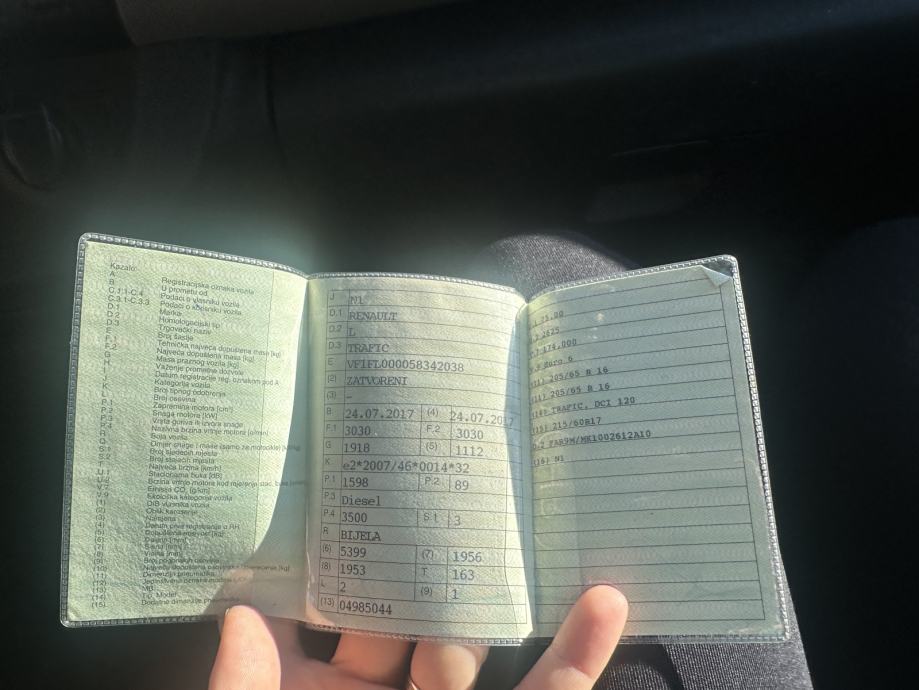 Kazalo:
A Registracijska oznaka vozila
B U prometu od
C.1.1-C.4 Podaci o vlasniku vozila
C.3.1-C.3.3 Podaci o korisniku vozila
D.1 Marka
D.2 Homologacijski tip
D.3 Trgovački naziv
E Broj šasije
F.1 Tehnička najveća dopuštena masa [kg]
F.2 Najveća dopuštena masa [kg]
G Masa praznog vozila [kg]
H Važenje prometne dozvole
I Datum registracije reg. oznakom pod A
J Kategorija vozila
K Broj tipnog odobrenja
L Broj osovina
P.1 Zapremina motora [cm³]
P.2 Snaga motora [kW]
P.3 Vrsta goriva ili izvora snage
P.4 Nazivna brzina vrtnje motora [o/min]
R Boja vozila
Broj sjedećih mjesta
Broj stajaćih mjesta
T Najveća brzina [km/h]
U.1 Stacionarna buka [dB]
Emisija CO₂ [g/km]
V.9 Ekološka kategorija vozila
(1) OIB vlasnika vozila
(2) Oblik karoserije
(3) Namjena
(4) Datum prve registracije u RH
(5)
(6)
(7)
(8)
(9)
(11) Dimenzije pneumatika
(12)
(13) MB
(14) Tip, Model
(15) Dodatne dimenzije pneumatika
J N1
D.1 RENAULT
D.2 L
D.3 TRAFIC
E VF1FL000058342038
(2) ZATVORENI
(3) –
B 24.07.2017 (4) 24.07.2017
F.1 3030 F.2 3030
G 1918 (5) 1112
K e2*2007/46*0014*32
P.1 1598 P.2 89
P.3 Diesel
P.4 3500 S.1 3
R BIJELA
(6) 5399 (7) 1956
(8) 1953 T 163
L 2 (9) 1
(13) 04985044
75.00
2625
174.000
Euro 6
205/65 R 16
205/65 R 16
TRAFIC, DCI 120
(15) 215/60R17
D.2 FAR9M/MK1002612A10
(16) N1